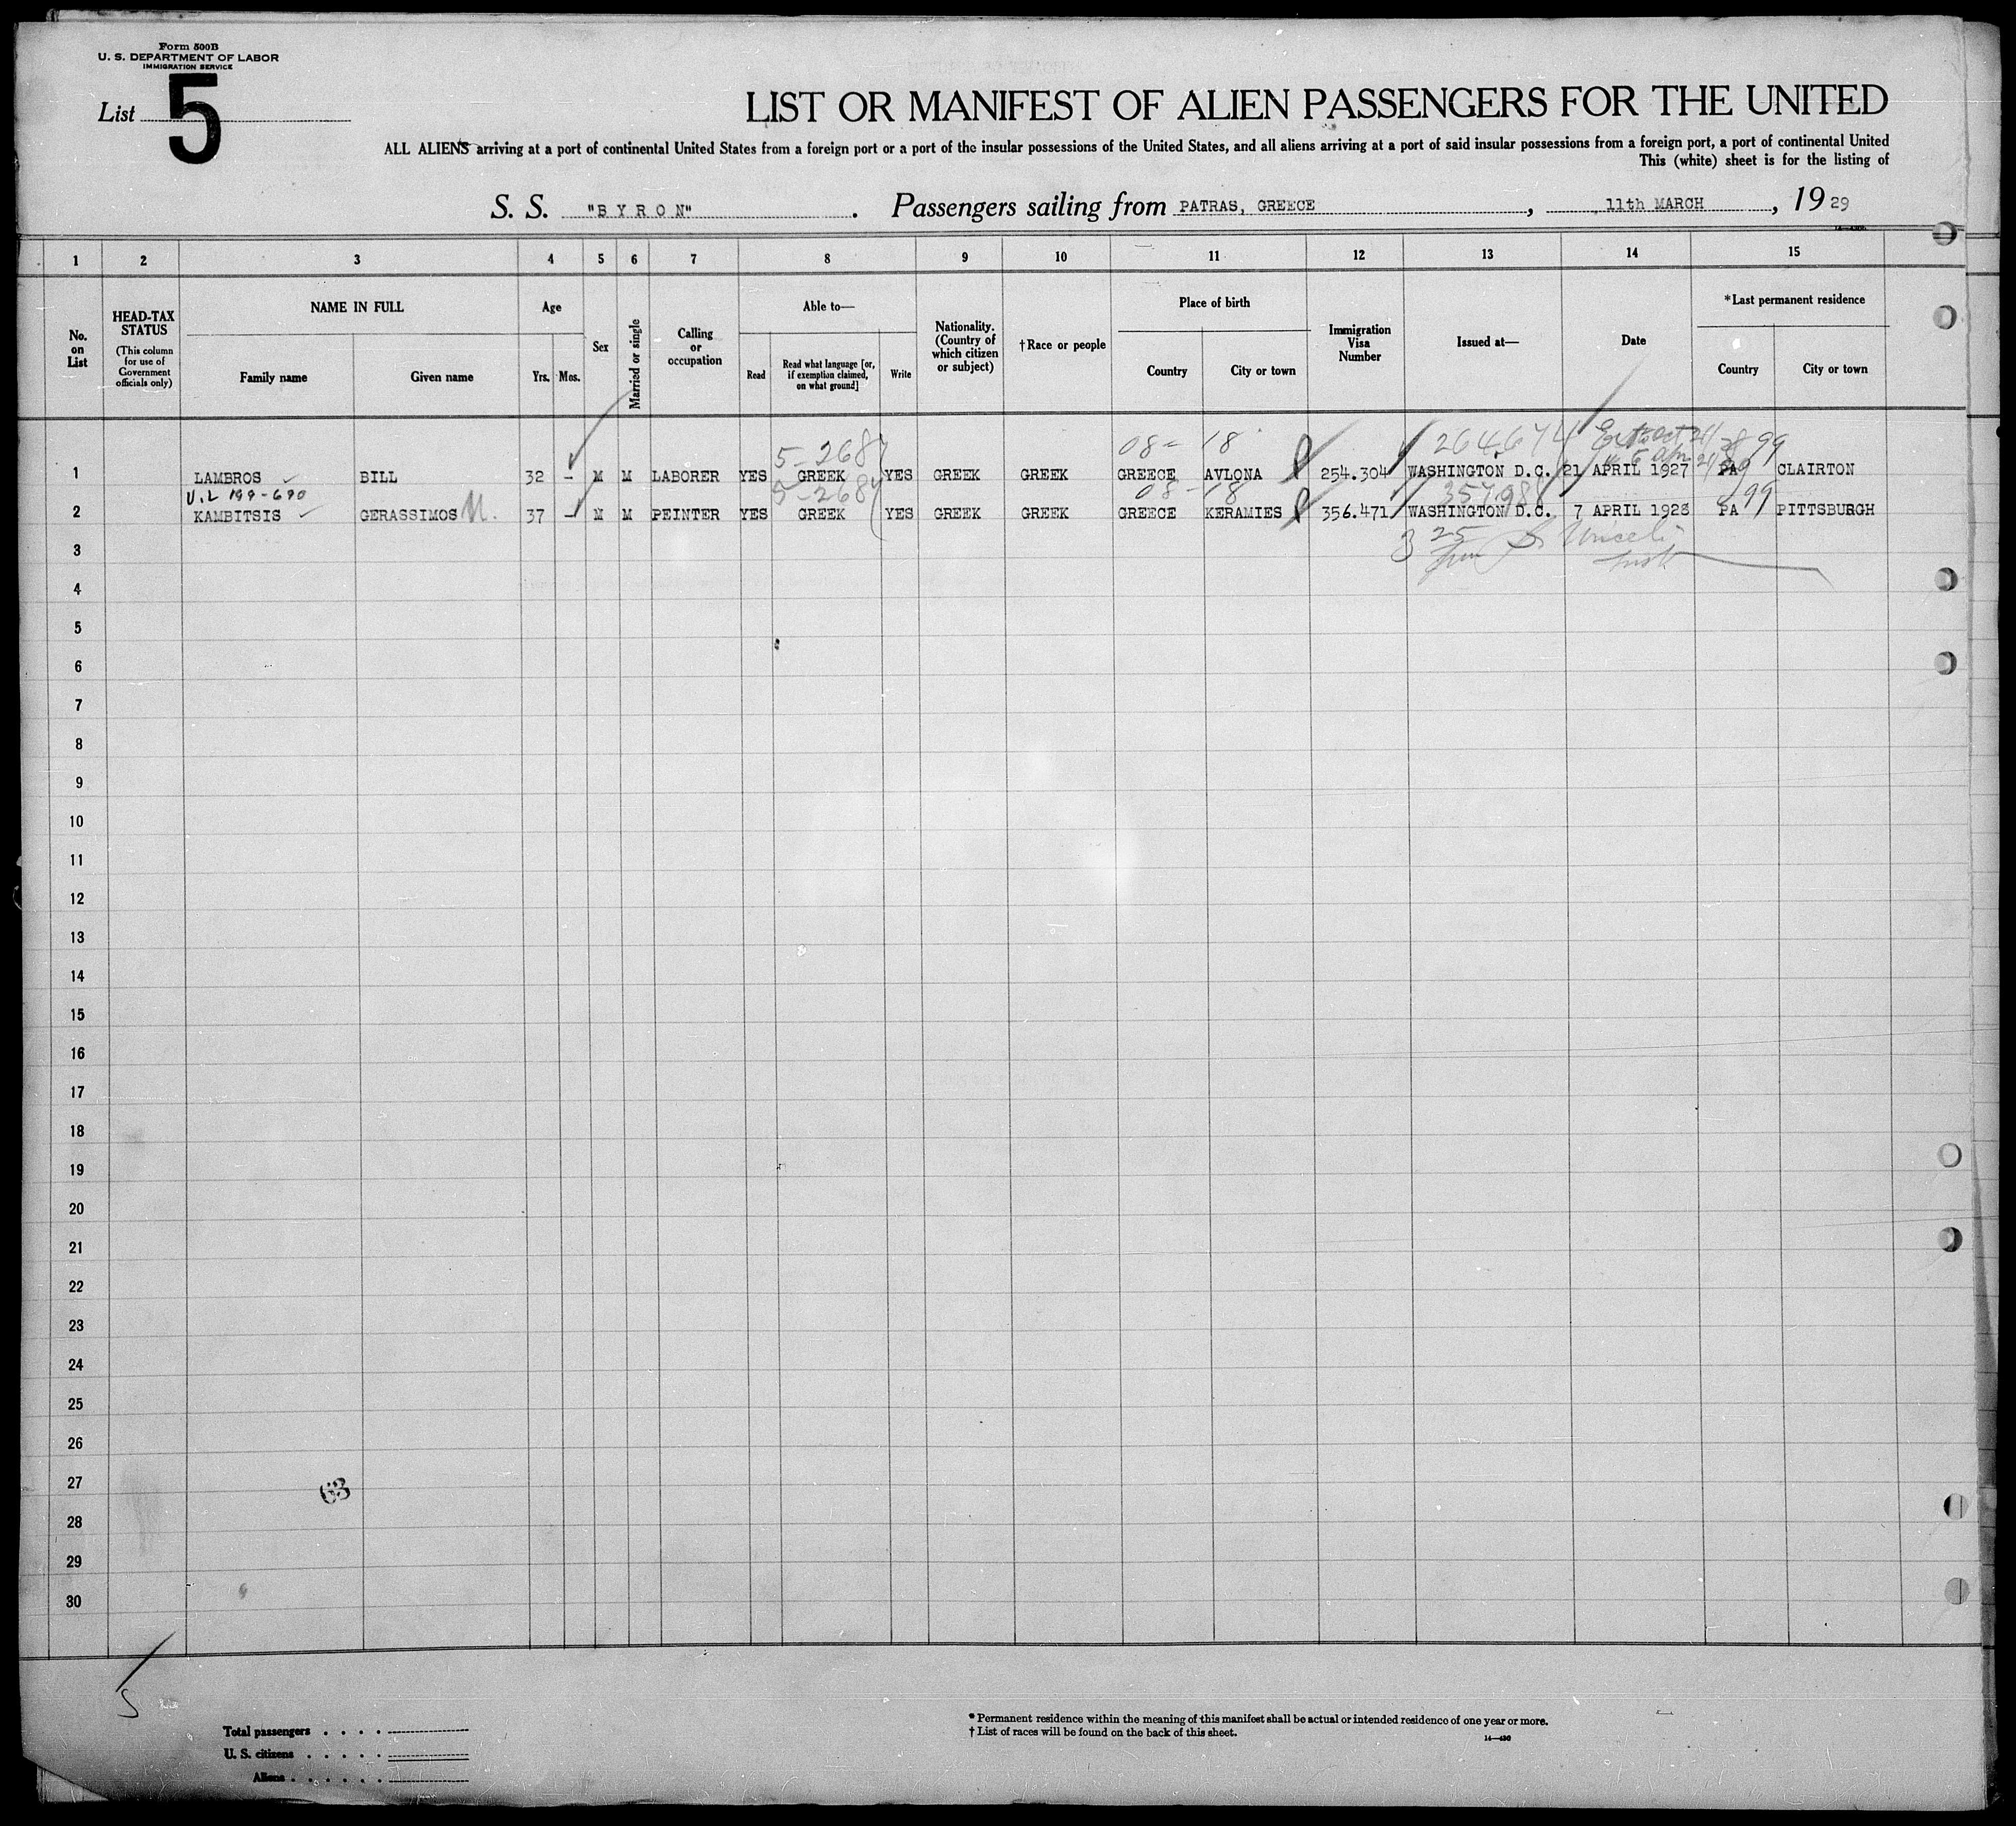 Form 500B
U. S. DEPARTMENT OF LABOR
IMMIGRATION SERVICE
List 5
LIST OR MANIFEST OF ALIEN PASSENGERS FOR THE UNITED
ALL ALIENS arriving at a port of continental United States from a foreign port or a port of the insular possessions of the United States, and all aliens arriving at a port of said insular possessions from a foreign port, a port of continental United
This (white) sheet is for the listing of
S. S. "BYRON". Passengers sailing from PATRAS, GREECE, 11th MARCH, 19 29
1 2 3 4 5 6 7 8 9 10 11 12 13 14 15
No. on List
HEAD-TAX STATUS
(This column for use of Government officials only)
NAME IN FULL
Family name Given name
Age
Yrs. Mos.
Sex
Married or single
Calling or occupation
Able to—
Read
Read what language [or, if exemption claimed, on what ground]
Write
Nationality. (Country of which citizen or subject)
†Race or people
Place of birth
Country City or town
Immigration Visa Number
Issued at—
Date
*Last permanent residence
Country City or town
5-268 08- 18 264674 99
1 LAMBROS BILL 32 - M M LABORER YES GREEK YES GREEK GREEK GREECE AVLONA 254.304 WASHINGTON D.C. 21 APRIL 1927 PA CLAIRTON
V.L 199-690 5-268 08-18 357988 99
2 KAMBITSIS GERASSIMOS 37 - M M PEINTER YES GREEK YES GREEK GREEK GREECE KERAMIES 356.471 WASHINGTON D.C. 7 APRIL 1928 PA PITTSBURGH
3
4
5
6
7
8
9
10
11
12
13
14
15
16
17
18
19
20
21
22
23
24
25
26
27
63
28
29
30
5
Total passengers
U. S. citizens
Aliens
* Permanent residence within the meaning of this manifest shall be actual or intended residence of one year or more.
† List of races will be found on the back of this sheet.
14—430